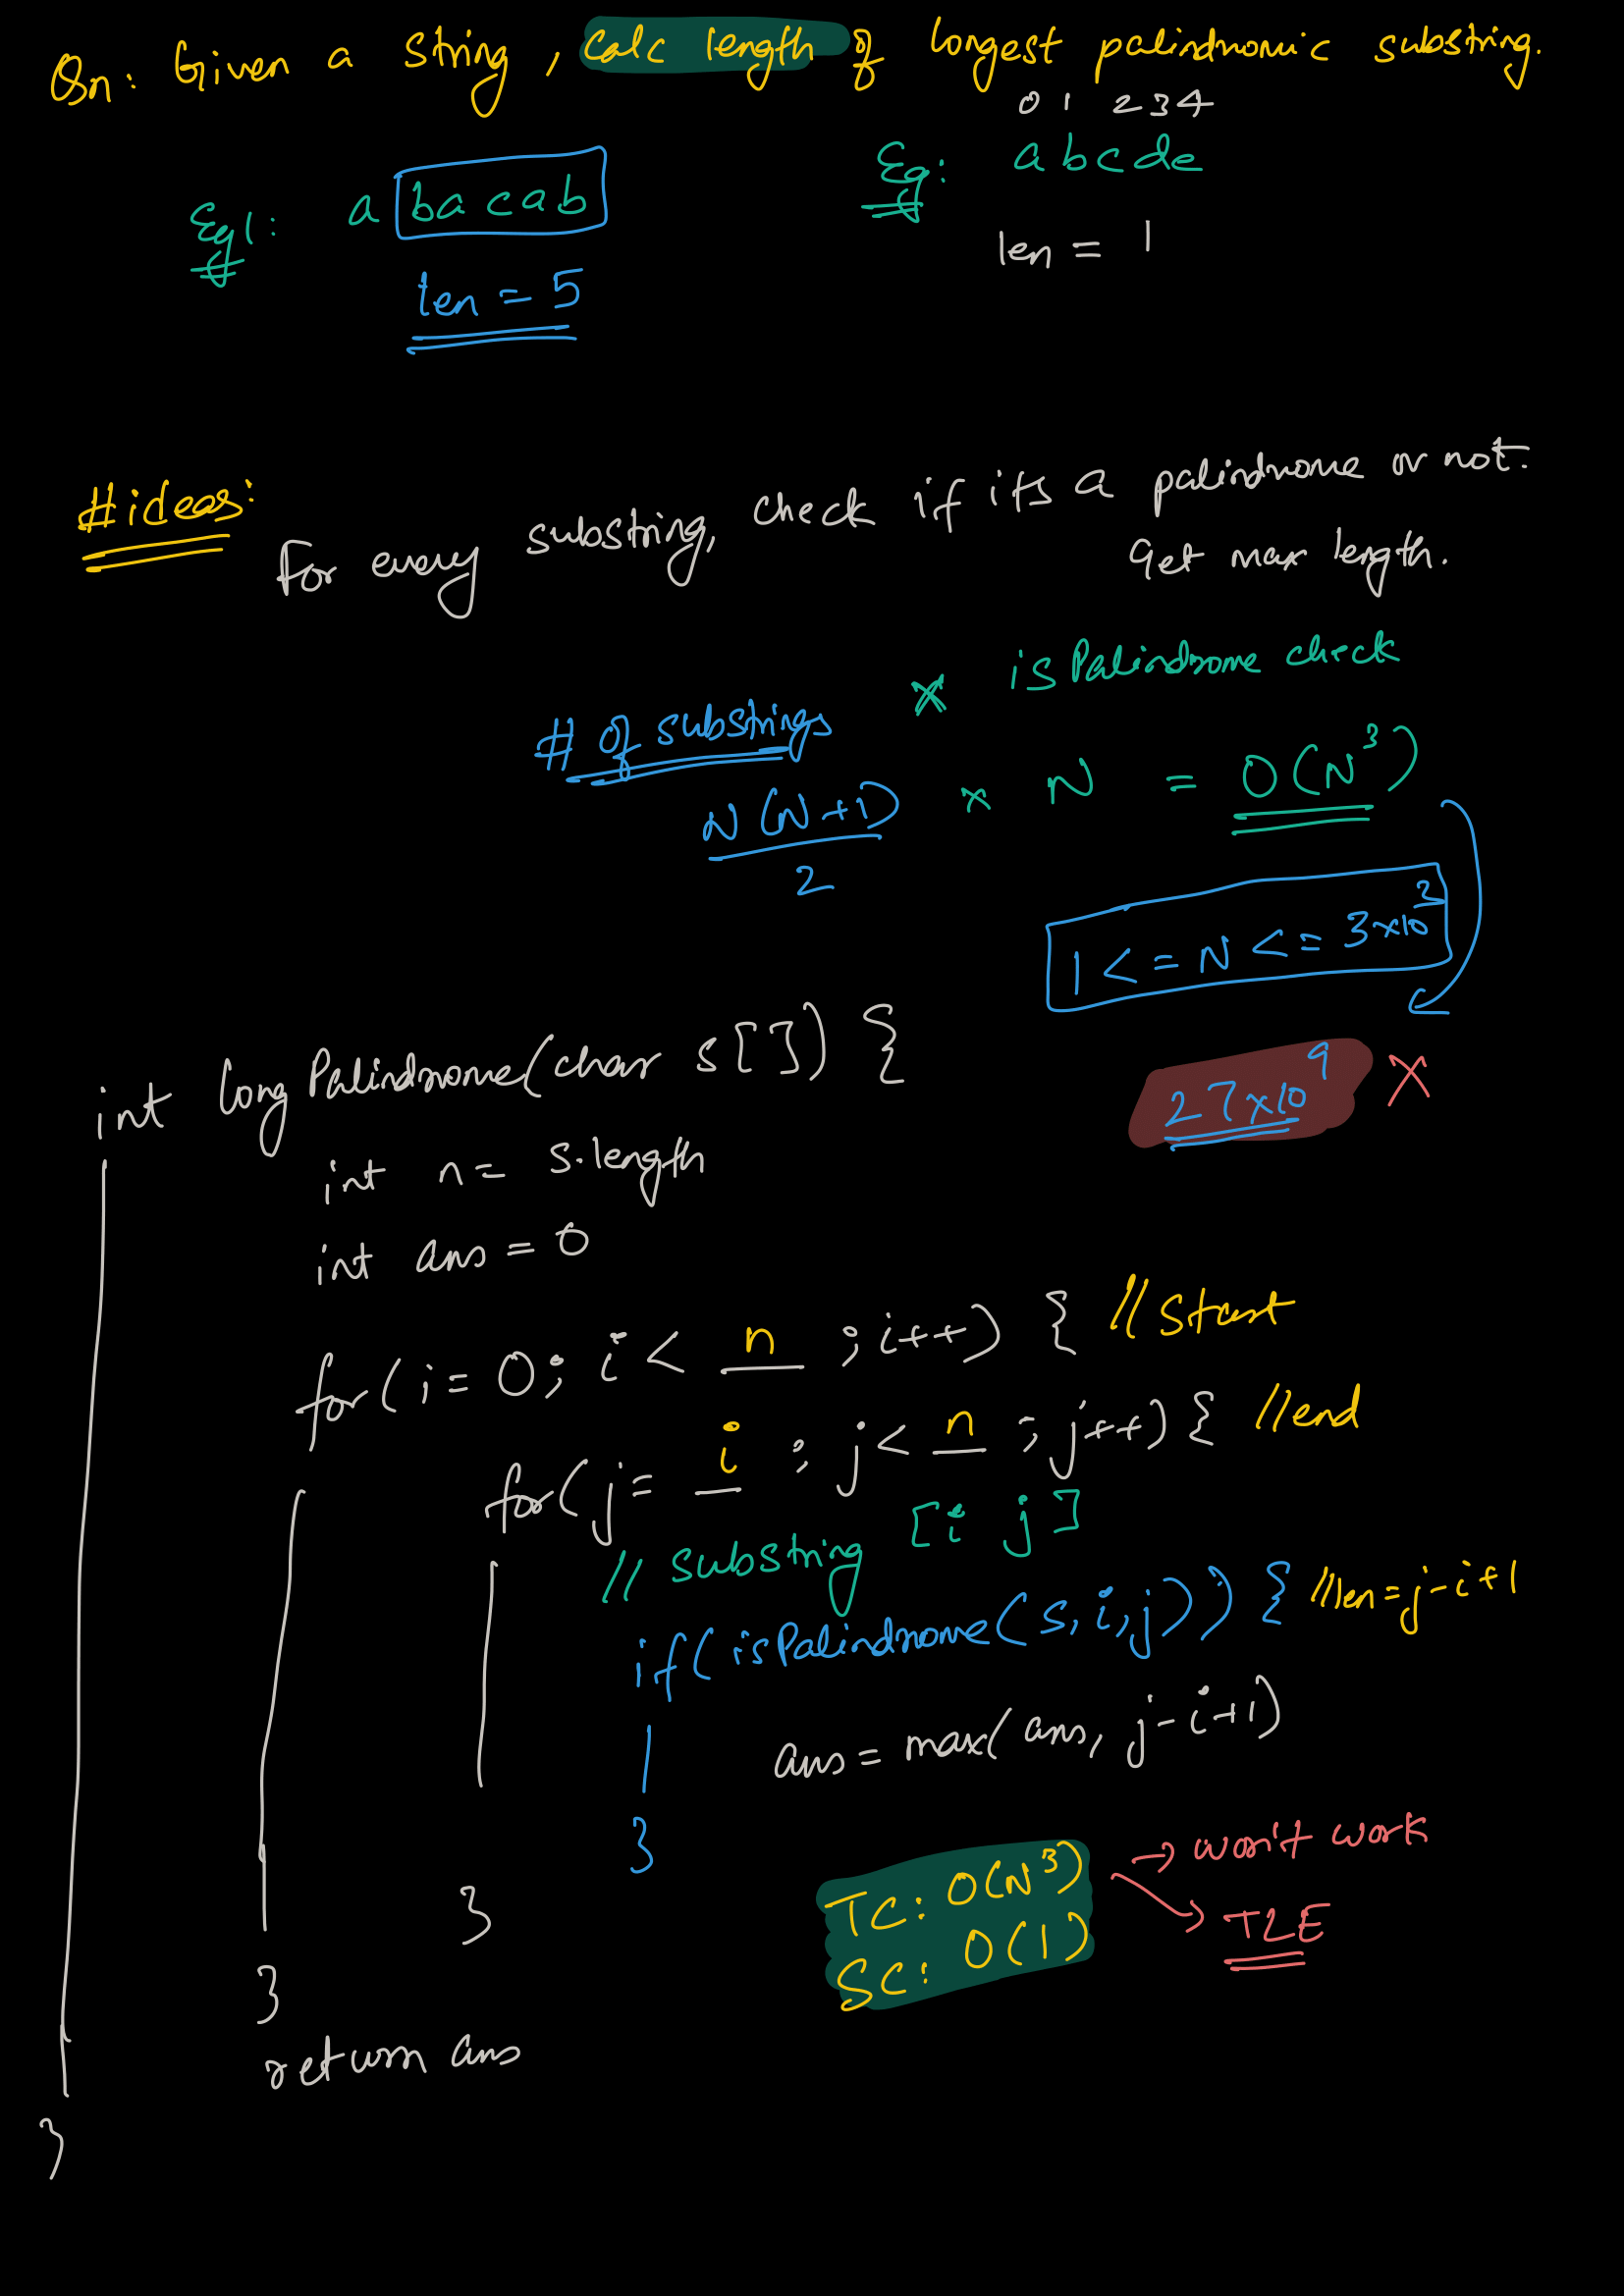 Qn: Given a string, calc length of longest palindromic substring.
0 1 2 3 4
Eg1: a bacab
Eg: a b c d e
len = 5
len = 1
#ideas:
For every substring, check if its a palindrome or not.
Get max length.
# of substrings × isPalindrome check
N(N+1)/2 × N = O(N³)
1 <= N <= 3×10³
27×10⁹ ×
int longPalindrome(char s[]) {
int n = s.length
int ans = 0
for(i = 0; i < n ; i++) { //start
for(j = i ; j < n ; j++) { //end
// substring [i j]
if(isPalindrome(s,i,j)) { //len=j-i+1
ans = max(ans, j-i+1)
}
}
}
TC: O(N³) → won't work
SC: O(1) → TLE
return ans
}